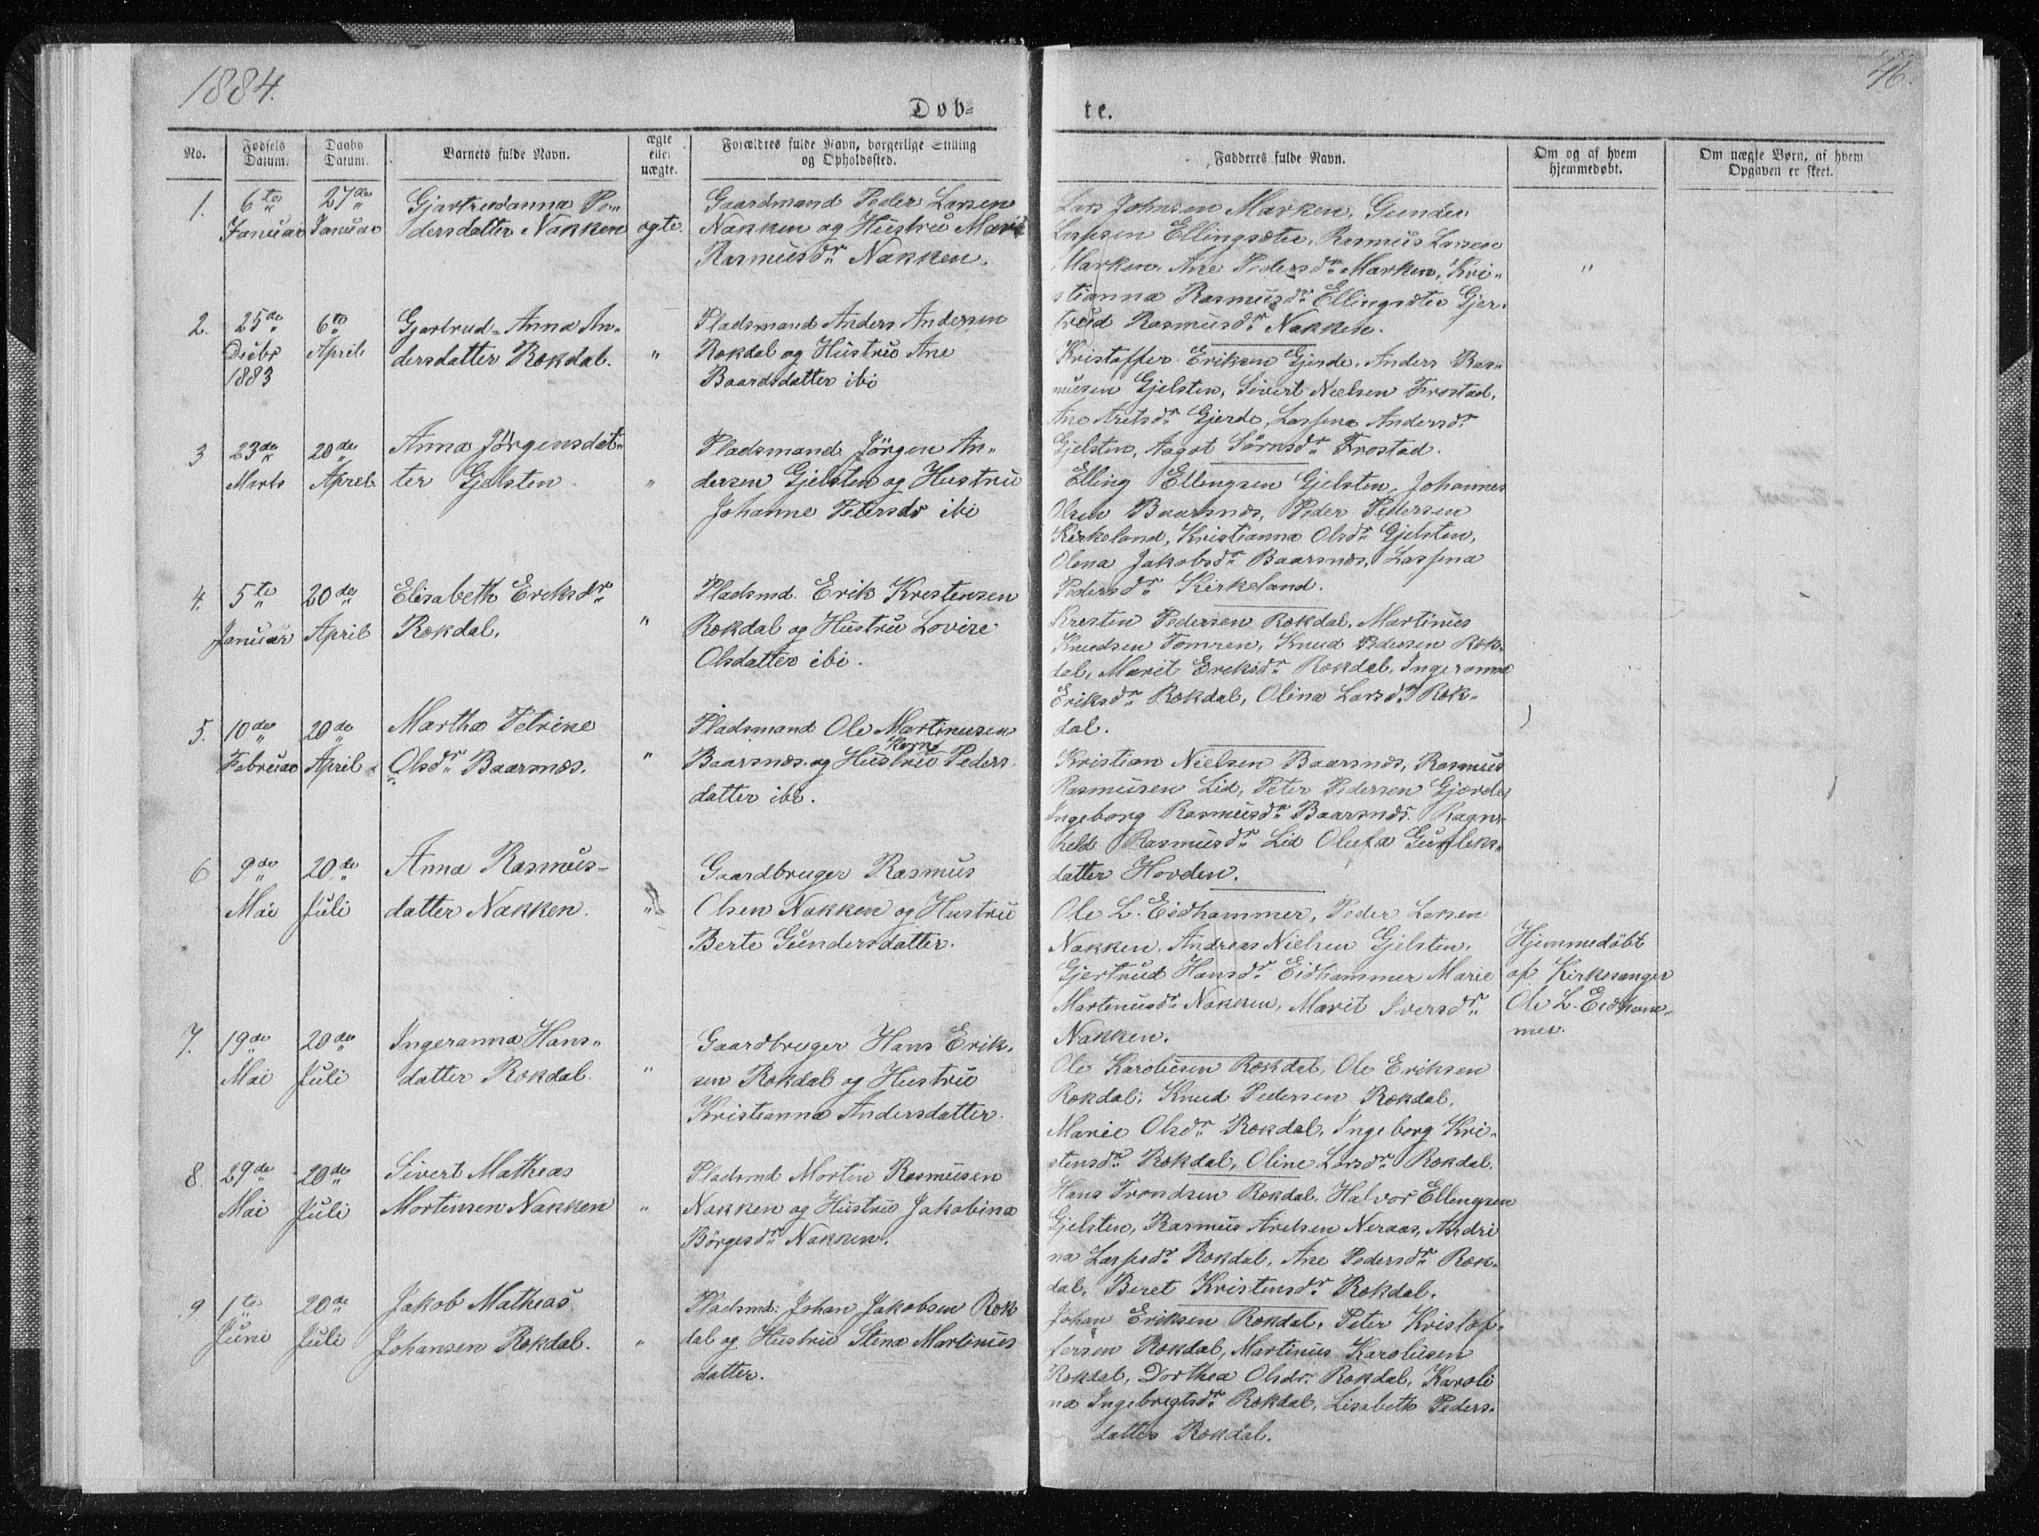 1884.
46.
Døb-
te.
No.
Fødsels Datum.
Daabs Datum.
Barnets fulde Navn.
ægte eller uægte.
Forældres fulde Navn, borgerlige Stilling og Opholdssted.
Fadderes fulde Navn.
Om og af hvem hjemmedøbt.
Om uægte Børn, af hvem Opgaven er skeet.
1.
6te Januar
27de Januar
Gjertrudanna Pe-
dersdatter Nakken
ægte
Gaardmand Peder Larsen
Nakken og Hustru Marit
Rasmusdr Nakken.
Lars Johnsen Marken, Gunder
Larsen Ellingsæter, Rasmus Larsen
Marken, Ane Pedersdr Marken, Kri-
stianna Rasmusdr Ellingsæter Gjer-
trud Rasmusdr Nakken.
"
2.
25de Decbr 1883
6te April
Gjertrud-Anna An-
dersdatter Rokdal.
"
Pladsmand Anders Andersen
Rokdal og Hustru Ane
Baardsdatter ibi
Kristoffer Eriksen Gjerde, Anders Ras-
musen Gjelsten, Sivert Nielsen Frostad,
Ane Aretsdr Gjerde, Larsina Andersdr
Gjelsten, Aagot Sörnsdr Frostad.
3
23de Marts
20de April
Anna Jörgensdat-
ter Gjelsten
"
Pladsmand Jörgen An-
dersen Gjelsten og Hustru
Johanne Petersdr ibi
Elling Ellingsen Gjelsten, Johannes
Olsen Baarsnæs, Peder Pedersen
Kirkeland, Kristianna Olsdr Gjelsten,
Olena Jakobsdr Baarsnæs, Larsina
Pedersdr Kirkeland.
4.
5te Januar
20de April
Elisabeth Eriksdr
Rokdal.
"
Pladsmd. Erik Kristensen
Rokdal og Hustru Lovise
Olsdatter ibi.
Kresten Pedersen Rokdal, Martinus
Knudsen Tomren, Knud Pedersen Rok-
dal, Marit Eriksdr Rokdal, Ingeranna
Eriksdr Rokdal, Olina Larsdr Rok-
dal.
5.
10de Februar
20de April
Martha Petrine
Olsdr Baarsnæs.
"
Pladsmand Ole Martinusen
Baarsnæs og Hustru Karn Peders-
datter ibi.
Kristian Nielsen Baarsnæs, Rasmus
Rasmusen Lid, Peter Pedersen Gjerde,
Ingeborg Rasmusdr Baarsnæs, Ragn-
hild Rasmusdr Lid Olufa Gunleks-
datter Hovden.
6
9de Mai
20de Juli
Anna Rasmus-
datter Nakken.
"
Gaardbruger Rasmus
Olsen Nakken og Hustru
Berte Gundersdatter.
Ole L. Eidhammer, Peder Larsen
Nakken, Andreas Nielsen Gjelsten,
Gjertrud Hansdr Eidhammer Marie
Martinusdr Nakken, Marit Iversdr
Nakken.
Hjemmedöbt
af Kirkesanger
Ole L. Eidham-
mer.
7.
19de Mai
20de Juli
Ingeranna Hans-
datter Rokdal.
"
Gaardbruger Hans Erik-
sen Rokdal og Hustru
Kristianna Andersdatter.
Ole Karolusen Rokdal, Ole Eriksen
Rokdal, Knud Pedersen Rokdal,
Marie Olsdr Rokdal, Ingeborg Kri-
stensdr Rokdal, Oline Larsdr Rokdal.
8.
29de Mai
20de Juli
Sivert Matheas
Mortensen Nakken
"
Pladsmd Morten Rasmusen
Nakken og Hustru Jakobina
Börgesdr Nakken.
Hans Trondsen Rokdal, Halvor Ellingsen
Gjelsten, Rasmus Aretsen Neraas, Andri
na Larsesdr Rokdal, Ane Pedersdr Rok-
dal, Beret Kristensdr Rokdal.
9
1te Juni
20de Juli
Jakob Matheas
Johansen Rokdal.
"
Pladsmd. Johan Jakobsen Rok
dal og Hustru Stena Martinus
datter.
Johan Eriksen Rokdal, Peter Kristof-
fersen Rokdal, Martinus Karolusen
Rokdal, Dorthea Olsdr. Rokdal, Karoli
na Ingebregtsdr Rokdal, Lisabeth Peders-
datter Rokdal.